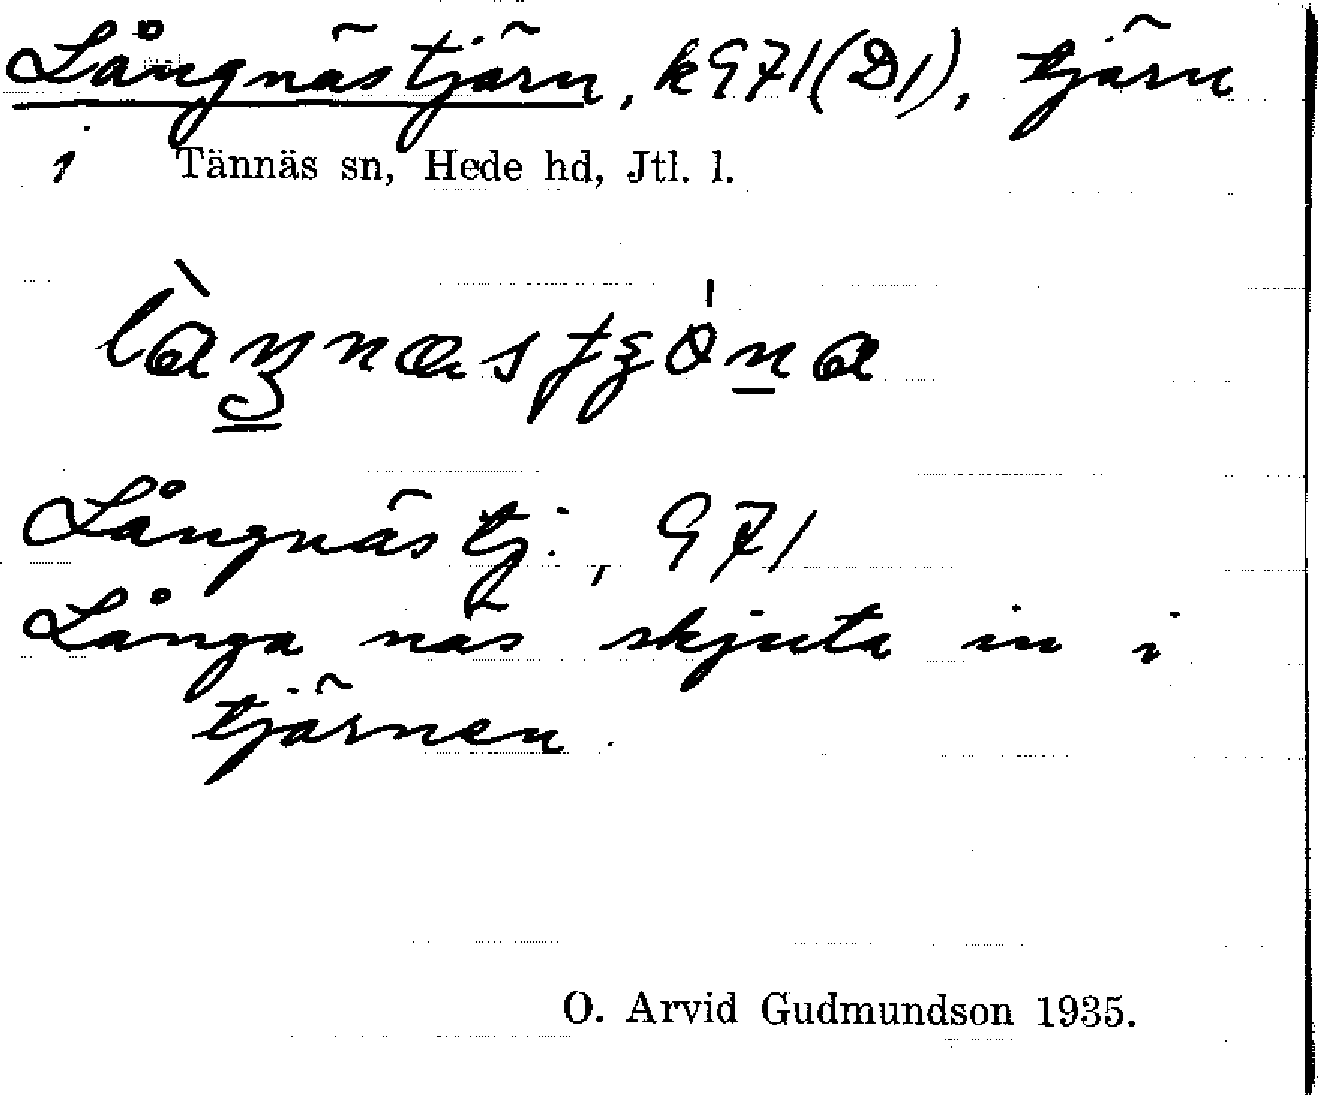 Långnästjärn, k971(D1), tjärn
i Tännäs sn, Hede hd, Jtl. l.
Långnästj., 971
Långa näs skjuta in i
tjärnen.
O. Arvid Gudmundson 1935.